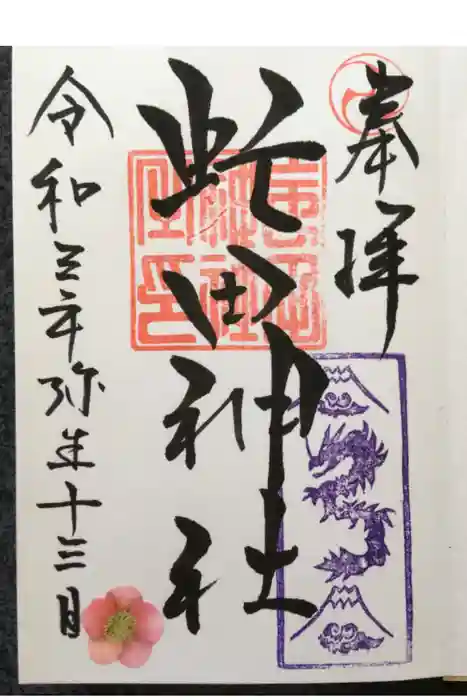 奉拝
虻田神社
令和三年弥生十三日